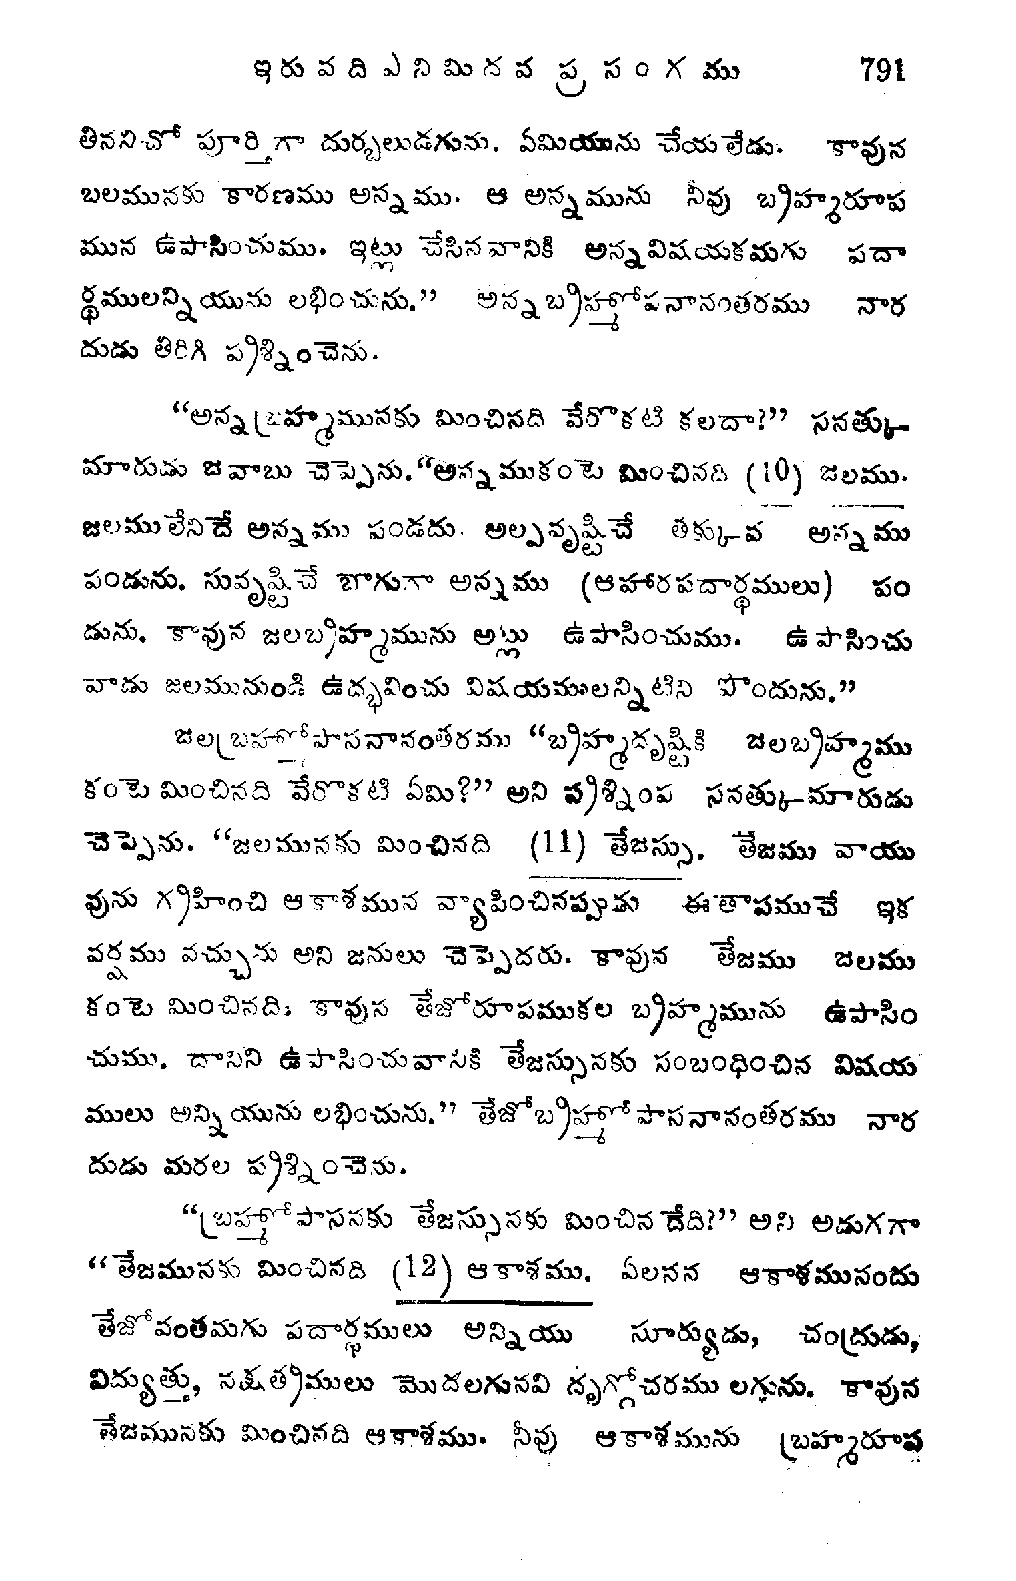 ఇరువదిఎనిమిదవ ప్రసంగము 791
తిననిచో పూర్తిగా దుర్బలుడగును. ఏమియును చేయలేడు. కావున
బలమునకు కారణము అన్నము. ఆ అన్నమును నీవు బ్రహ్మరూప
మున ఉపాసించుము. ఇట్లు చేసినవానికి అన్నవిషయకమగు పదా
ర్థములన్నియును లభించును.” అన్నబ్రహ్మోపనానంతరము నార
దుడు తిరిగి ప్రశ్నించెను.
“అన్నబ్రహ్మమునకు మించినది వేరొకటి కలదా?” సనత్కు
మారుడు జవాబు చెప్పెను.“అన్నముకంటె మించినది (10) జలము.
జలములేనిదే అన్నము పండదు. అల్పవృష్టిచే తక్కువ అన్నము
పండును. సువృష్టిచే బాగుగా అన్నము (ఆహారపదార్థములు) పం
డును. కావున జలబ్రహ్మమును అట్లు ఉపాసించుము. ఉపాసించు
వాడు జలమునుండి ఉద్భవించు విషయములన్నిటిని పొందును.”
జలబ్రహ్మోపాసనానంతరము “బ్రహ్మదృష్టికి జలబ్రహ్మము
కంటె మించినది వేరొకటి ఏమి?” అని ప్రశ్నింప సనత్కుమారుడు
చెప్పెను. “జలమునకు మించినది (11) తేజస్సు. తేజము వాయు
వును గ్రహించి ఆకాశమున వ్యాపించినప్పుడు ఈతాపముచే ఇక
వర్షము వచ్చును అని జనులు చెప్పెదరు. కావున తేజము జలము
కంటె మించినది; కావున తేజోరూపముకల బ్రహ్మమును ఉపాసిం
చుము. దానిని ఉపాసించువానికి తేజస్సునకు సంబంధించిన విషయ
ములు అన్నియును లభించును.” తేజోబ్రహ్మోపాసనానంతరము నార
దుడు మరల ప్రశ్నించెను.
“బ్రహ్మోపాసనకు తేజస్సునకు మించినదేది?” అని అడుగగా
“తేజమునకు మించినది (12) ఆకాశము. ఏలనన ఆకాశమునందు
తేజోవంతమగు పదార్థములు అన్నియు సూర్యుడు, చంద్రుడు,
విద్యుత్తు, నక్షత్రములు మొదలగునవి దృగ్గోచరము లగును. కావున
తేజమునకు మించినది ఆకాశము. నీవు ఆకాశమును బ్రహ్మరూప